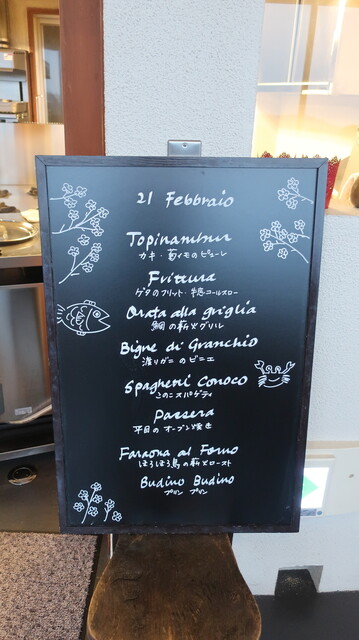 21 Febbraio
Topinambur
カキ・菊イモのピューレ
Frittura
ゲタのフリット・半恋コールスロー
Orata alla griglia
鯛の薪火グリル
Bigne di Granchio
渡りガニのビニエ
Spaghetti Conoco
このこスパゲティ
Passera
平目のオーブン焼き
Faraona al Forno
ほろほろ鳥の薪火ロースト
Budino Budino
プリン プリン